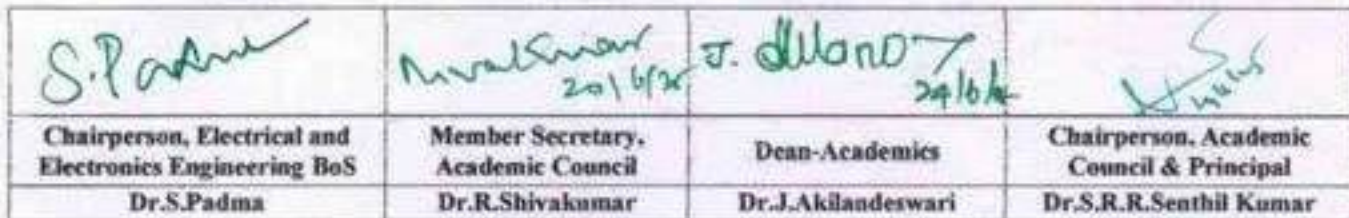 S. Padma
20/6/25
J.
Chairperson, Electrical and
Electronics Engineering BoS
Member Secretary,
Academic Council
Dean-Academics
Chairperson, Academic
Council & Principal
Dr.S.Padma
Dr.R.Shivakumar
Dr.J.Akilandeswari
Dr.S.R.R.Senthil Kumar